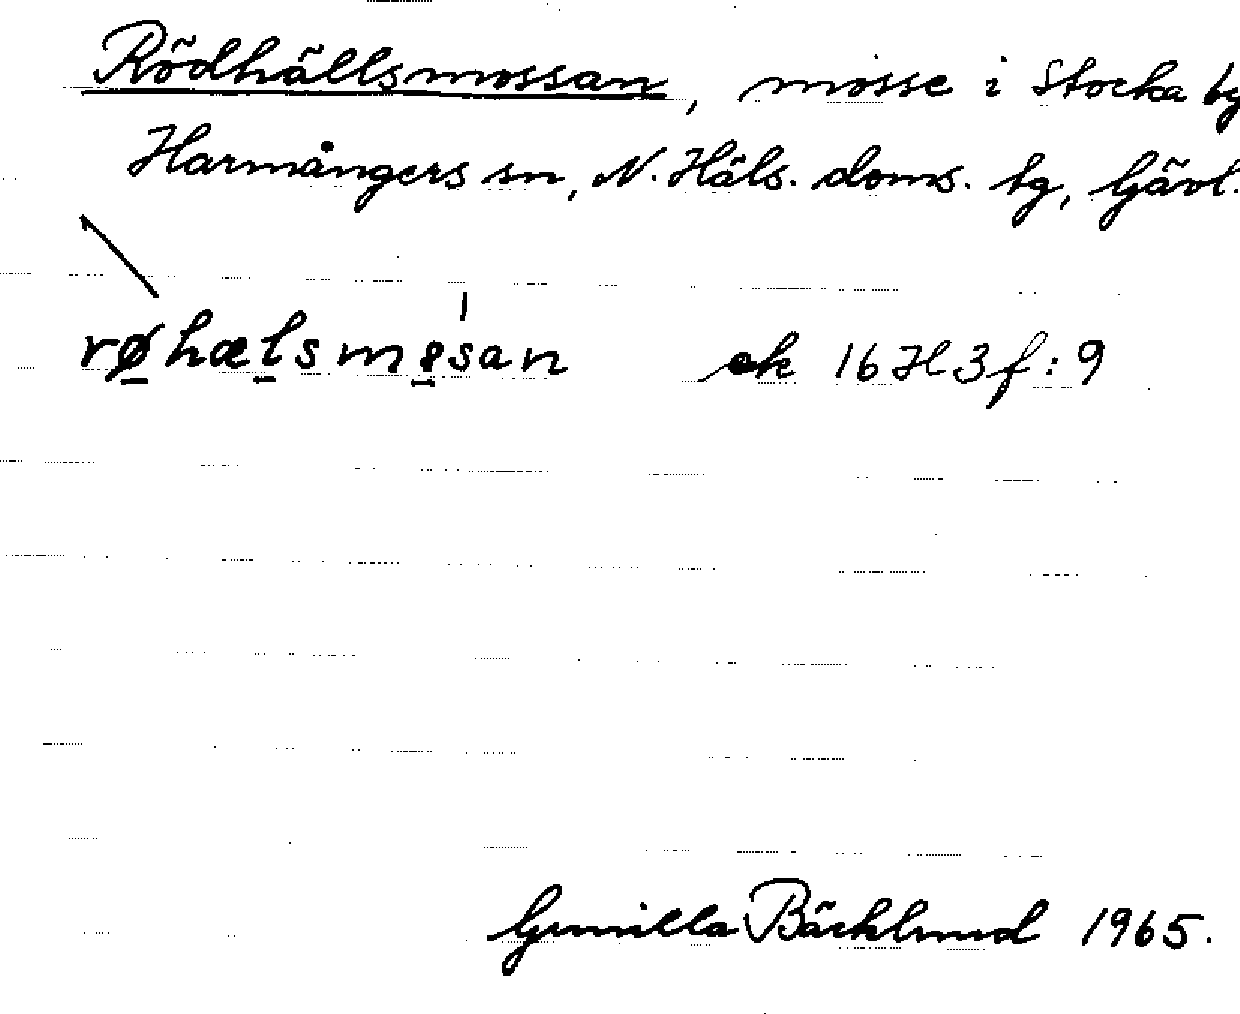 Rödhällsmossan, mosse i Stocka by
Harmångers sn, N. Häls. doms. tg, Gävl.
røhælsmosan ek 16H3f:9
Gunilla Bäcklund 1965.